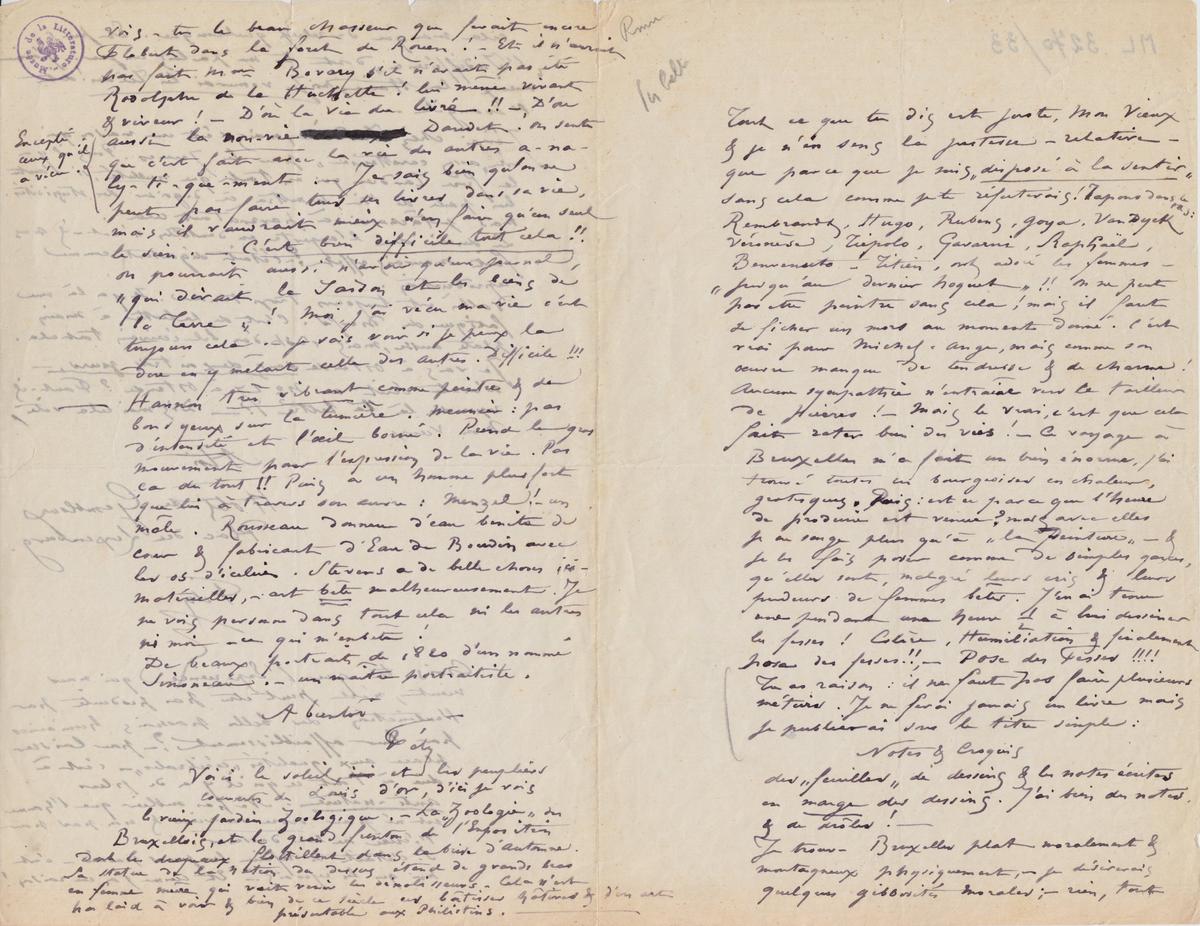 Musée de la Littérature
ML 3270/33
vois-tu le beau chasseur que ferait encore
Flaubert dans la forêt de Rouen! - Et il n'aurait
pas fait Mme Bovary s'il n'avait pas été
Rodolphe de la Huchette! lui même vivant
& viveur! - D'où la vie du livre!! -, D'où
aussi la non-vie Daudet. On sent
Excepté
ceux qu'il
a vécu.
que c'est fait avec la vie des autres a-na-
ly-ti-que-ment. - Je sais bien qu'on ne
peut pas faire tous ses livres dans sa vie,
mais il vaudrait mieux n'en faire qu'un seul
le sien. - C'est bien difficile tout cela!!
on pourrait aussi n'avoir qu'un journal,
"qui dirait le et les de
la Terre"! Moi j'ai vécu ma vie c'est
toujours cela. Je vais voir si je peux la
dire en y mêlant celle des autres. Difficile!!!
Hannon très vibrant comme peintre & de
bons yeux sur la lumière. Meunier: pas
d'intensité et l'œil borné. Prend le gros
mouvement pour l'expression de la vie. Pas
ça du tout!! Puis a un homme plus fort
que lui à travers son œuvre: Menzel! - un
mâle. Rousseau donneur d'eau bénite de
cour & fabricant d'Eau de Boudin avec
les os d'icelui. Stevens a de belles choses
matérielles, - art bête malheureusement. Je
ne vois personne dans tout cela ni les autres
ni moi - ce qui m'embête!
De beaux portraits de 1820 d'un nommé
- un maître portraitiste.
A bientôt
Fély
Voici le soleil, et les peupliers
couverts de Louis d'or, d'ici je vois
le vieux jardin Zoologique. - La "Zoologie" du
Bruxellois, et le grand fronton de l'Exposition
Dont les drapeaux flottillent dans la brise d'Automne.
La statue de la nation du dessus étend de grands bras
en femme mère qui voit venir les démolisseurs. Cela n'est
pas laid à voir & bien de ce siècle en bâtisses hâtives & d'un art
présentable aux Philistins.
Tout ce que tu dis est juste, Mon Vieux
& je n'en sens la justesse - relative -
que parce que je suis "disposé à la sentir"
sans cela comme je te réfuterais! Tapons dans le tas:
Rembrandt, Hugo, Rubens, Goya, Van Dyck
Véronèse, Tiepolo, Gavarni, Raphaël,
Benvenuto - Titien, ont adoré les femmes -
"jusqu'au dernier hoquet"!! On ne peut
pas être peintre sans cela! mais il faut
se ficher un mors au moment donné. C'est
vrai pour Michel-Ange, mais comme son
œuvre manque de tendresse & de charme!
Aucune sympathie n'entraîne vers le tailleur
de pierres! - Mais le vrai, c'est que cela
fait rater bien des vies! - Ce voyage à
Bruxelles m'a fait un bien énorme, j'ai
trouvé toutes ces bourgeoises en chaleur,
grotesques. Puis: est ce parce que l'heure
de produire est venue? mais avec elles
je ne songe plus qu'à "la peinture" - &
je les fais poser comme de simples garces,
qu'elles sont, malgré leurs cris & leurs
pudeurs de femmes bêtes. J'en ai tenu
une pendant une heure ½ à lui dessiner
les fesses! Colère, Humiliation & finalement
pose des fesses!!, - Pose des Fesses!!!!
Tu as raison: il ne faut pas faire plusieurs
métiers. Je ne ferai jamais un livre mais
je publierai sous le titre simple:
Notes & Croquis
des "feuilles" de dessins & les notes écrites
en marge des dessins. J'ai bien des notes,
& de drôles! -
Je trouve Bruxelles plat moralement &
montagneux physiquement, - je désirerais
quelques gibbosités morales; - rien, tout